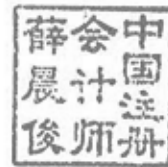 中国注册
会计师
薛晨俊